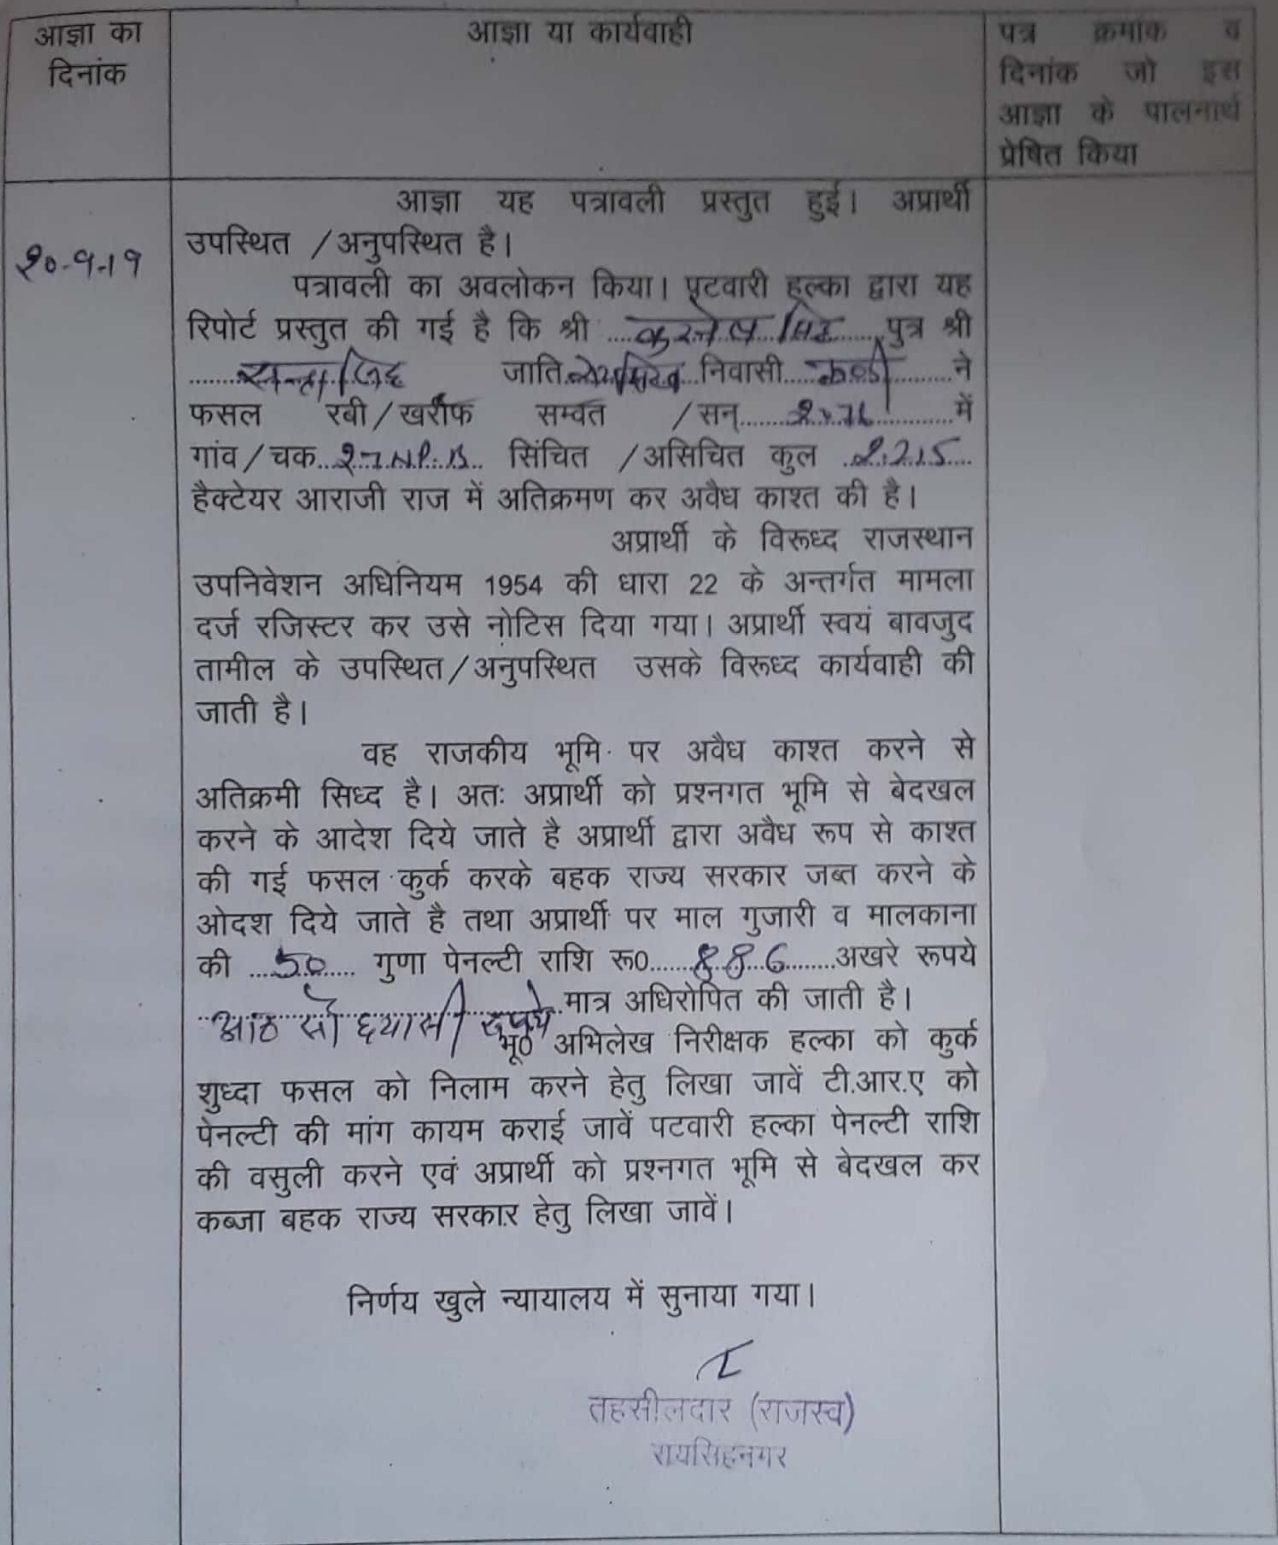 आज्ञा का
दिनांक
आज्ञा या कार्यवाही
पत्र क्रमांक व
दिनांक जो इस
आज्ञा के पालनार्थ
प्रेषित किया
२०-9-19
आज्ञा यह पत्रावली प्रस्तुत हुई। अप्रार्थी
उपस्थित /अनुपस्थित है।
पत्रावली का अवलोकन किया। पटवारी हल्का द्वारा यह
रिपोर्ट प्रस्तुत की गई है कि श्री ............ पुत्र श्री
............ जाति............निवासी............ने
फसल रबी/खरीफ सम्वत /सन्............में
गांव/चक............ सिंचित /असिचित कुल 2.215
हैक्टेयर आराजी राज में अतिक्रमण कर अवैध काश्त की है।
अप्रार्थी के विरूध्द राजस्थान
उपनिवेशन अधिनियम 1954 की धारा 22 के अन्तर्गत मामला
दर्ज रजिस्टर कर उसे नोटिस दिया गया। अप्रार्थी स्वयं बावजुद
तामील के उपस्थित/अनुपस्थित उसके विरूध्द कार्यवाही की
जाती है।
वह राजकीय भूमि पर अवैध काश्त करने से
अतिक्रमी सिध्द है। अतः अप्रार्थी को प्रश्नगत भूमि से बेदखल
करने के आदेश दिये जाते है अप्रार्थी द्वारा अवैध रूप से काश्त
की गई फसल कुर्क करके बहक राज्य सरकार जब्त करने के
ओदश दिये जाते है तथा अप्रार्थी पर माल गुजारी व मालकाना
की ....50.... गुणा पेनल्टी राशि रू0....886....अखरे रूपये
आठ सौ छयासी रुपये मात्र अधिरोपित की जाती है।
भू0 अभिलेख निरीक्षक हल्का को कुर्क
शुध्दा फसल को निलाम करने हेतु लिखा जावें टी.आर.ए को
पेनल्टी की मांग कायम कराई जावें पटवारी हल्का पेनल्टी राशि
की वसुली करने एवं अप्रार्थी को प्रश्नगत भूमि से बेदखल कर
कब्जा बहक राज्य सरकार हेतु लिखा जावें।
निर्णय खुले न्यायालय में सुनाया गया।
तहसीलदार (राजस्व)
रायसिहनगर